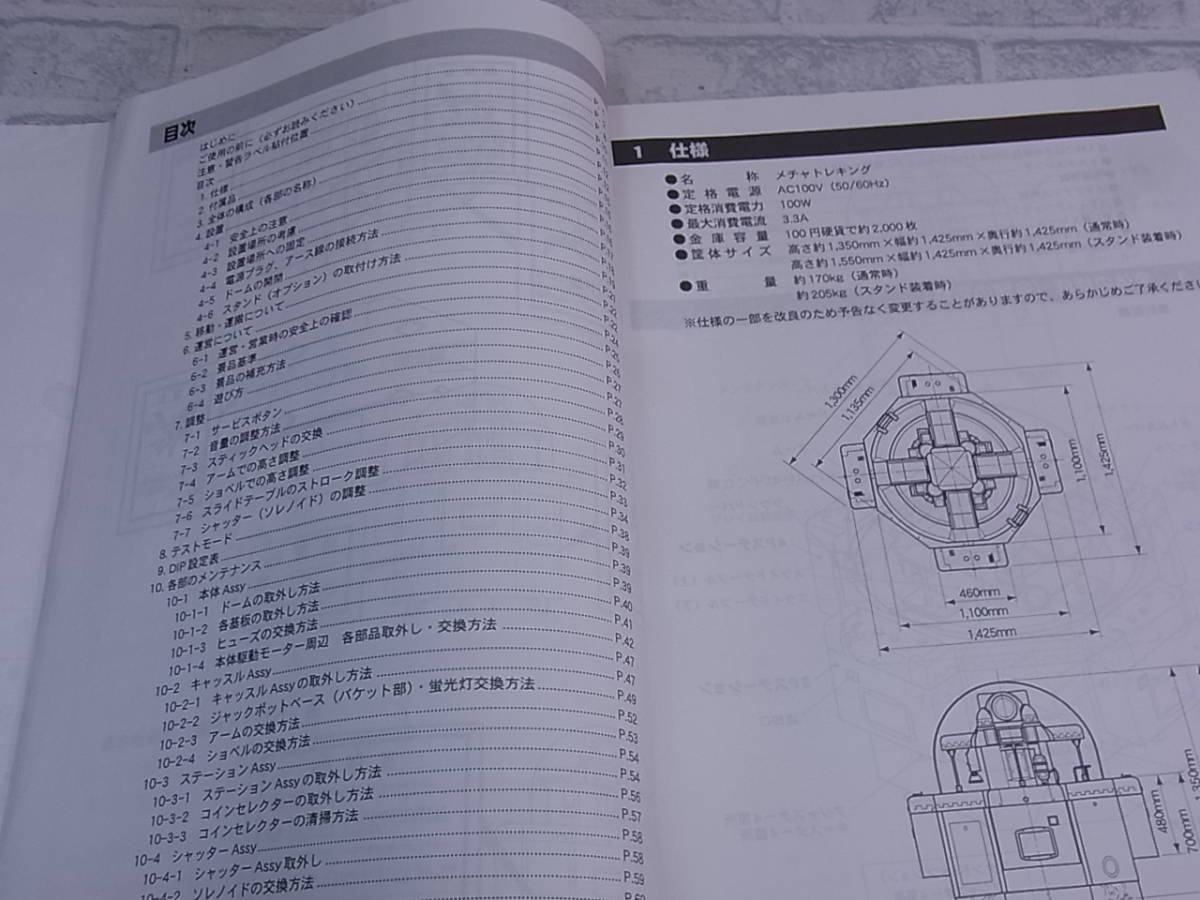 目次
はじめに
ご使用の前に（必ずお読みください）
注意・警告ラベル貼付位置
目次
1. 仕様
2. 付属品
3. 全体の構成（各部の名称）
4. 設置
4-1 安全上の注意
4-2 設置場所の考慮
4-3 設置場所への固定
4-4 電源プラグ、アース線の接続方法
4-5 ドームの開閉
4-6 スタンド（オプション）の取付け方法
5. 移動・運搬について
6. 運営について
6-1 運営・営業時の安全上の確認
6-2 景品基準
6-3 景品の補充方法
6-4 遊び方
7. 調整
7-1 サービスボタン
7-2 音量の調整方法
7-3 スティックヘッドの交換
7-4 アームでの高さ調整
7-5 ショベルでの高さ調整
7-6 スライドテーブルのストローク調整
7-7 シャッター（ソレノイド）の調整
8. テストモード
9. DIP 設定表
10. 各部のメンテナンス
10-1 本体Assy
10-1-1 ドームの取外し方法
10-1-2 各基板の取外し方法
10-1-3 ヒューズの交換方法
10-1-4 本体駆動モーター周辺 各部品取外し・交換方法
10-2 キャッスルAssy
10-2-1 キャッスルAssyの取外し方法
10-2-2 ジャックポットベース（バケット部）・蛍光灯交換方法
10-2-3 アームの交換方法
10-2-4 ショベルの交換方法
10-3 ステーションAssy
10-3-1 ステーションAssyの取外し方法
10-3-2 コインセレクターの取外し方法
10-3-3 コインセレクターの清掃方法
10-4 シャッターAssy
10-4-1 シャッターAssy取外し
10-4-2 ソレノイドの交換方法
P.24
P.25
P.26
P.27
P.27
P.28
P.29
P.30
P.31
P.32
P.33
P.34
P.38
P.39
P.39
P.39
P.40
P.41
P.42
P.47
P.47
P.49
P.52
P.53
P.54
P.54
P.56
P.57
P.58
P.58
P.59
P.60
1 仕様
●名称 メチャトレキング
●定格電源 AC100V（50/60Hz）
●定格消費電力 100W
●最大消費電流 3.3A
●金庫容量 100円硬貨で約2,000枚
●筐体サイズ 高さ約1,350mm×幅約1,425mm×奥行約1,425mm（通常時）
高さ約1,550mm×幅約1,425mm×奥行約1,425mm（スタンド装着時）
●重量 約170kg（通常時）
約205kg（スタンド装着時）
※仕様の一部を改良のため予告なく変更することがありますので、あらかじめご了承ください
1,300mm
1,135mm
1,100mm
1,425mm
460mm
1,100mm
1,425mm
480mm
700mm
1,350mm